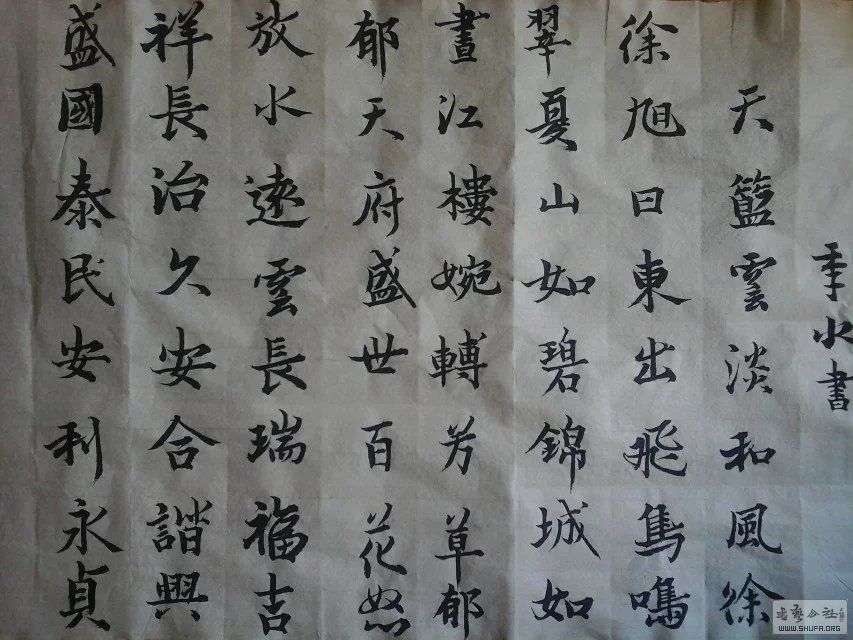 季水書
天籃雲淡和風徐
徐旭日東出飛鳥鳴
翠夏山如碧錦城如
畫江樓婉轉芳草郁
郁天府盛世百花怒
放水遠雲長瑞福吉
祥長治久安合諧興
盛國泰民安利永貞
書藝公社
WWW.SHUFA.ORG